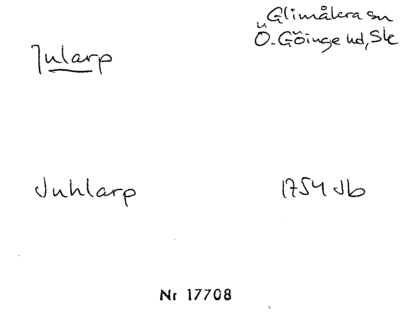 Glimåkra sn
Jularp
Ö. Göinge hd, Sk
Juhlarp
1754 Jb
Nr 17708